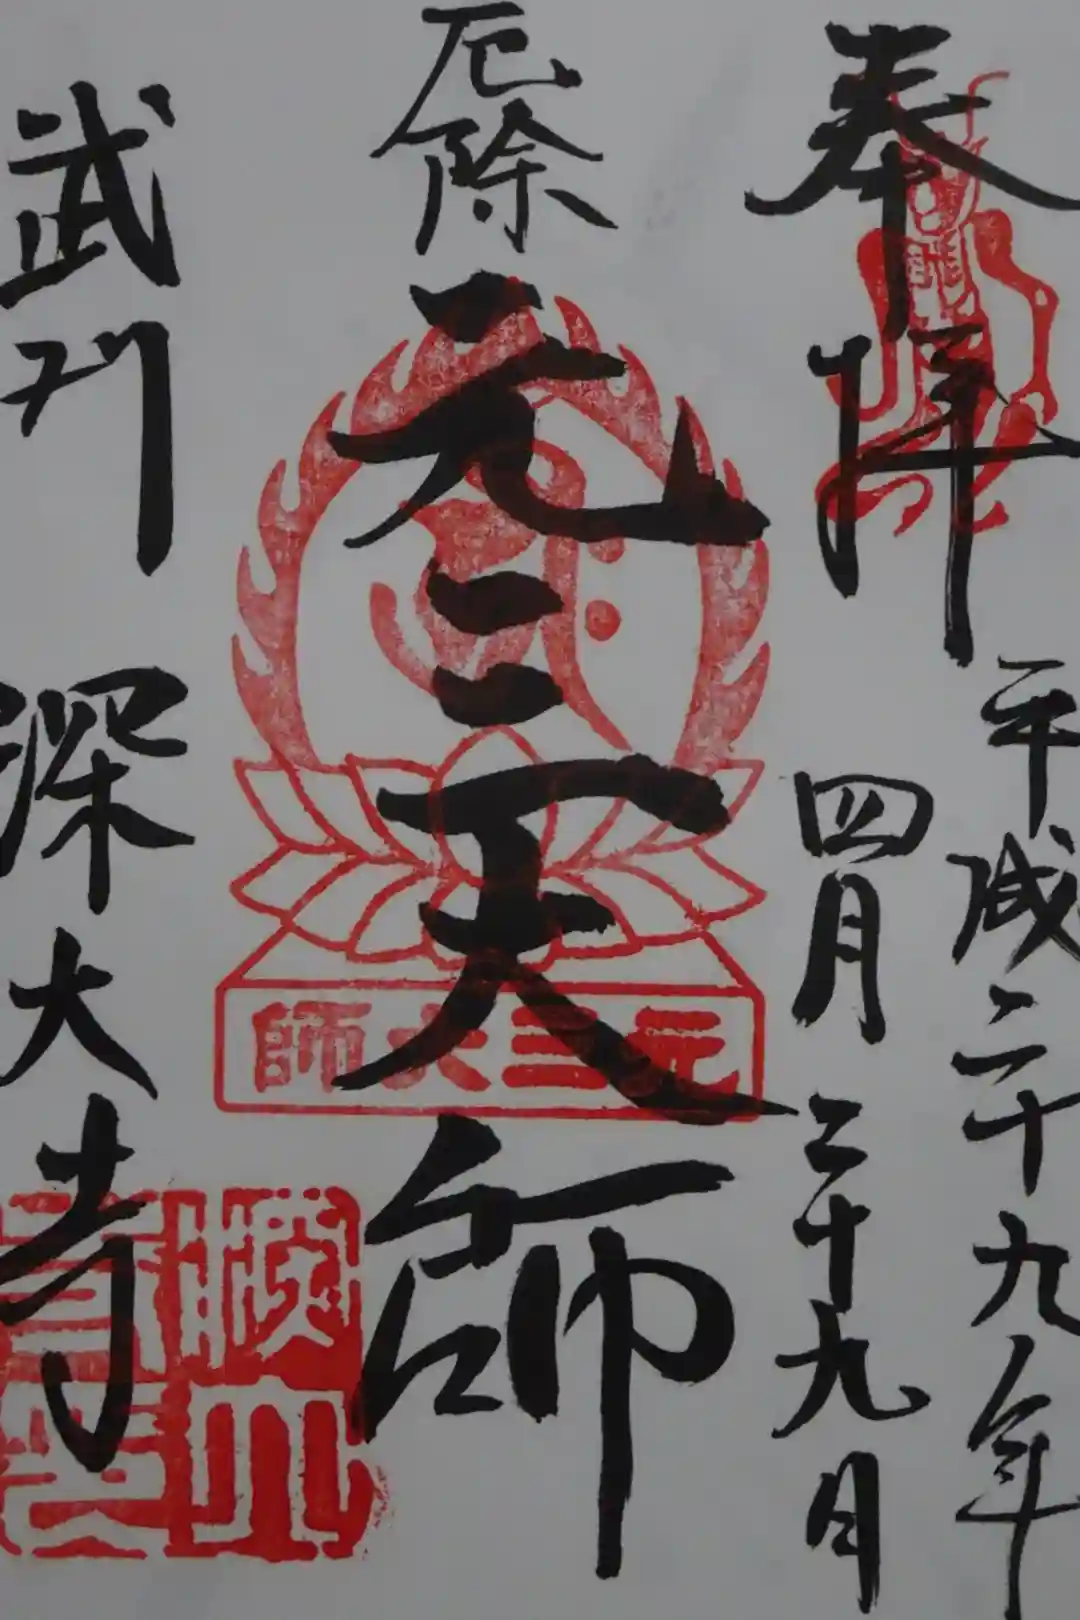 奉拝
平成二十九年
四月二十九日
厄除
元三大師
元三大師
武州 深大寺